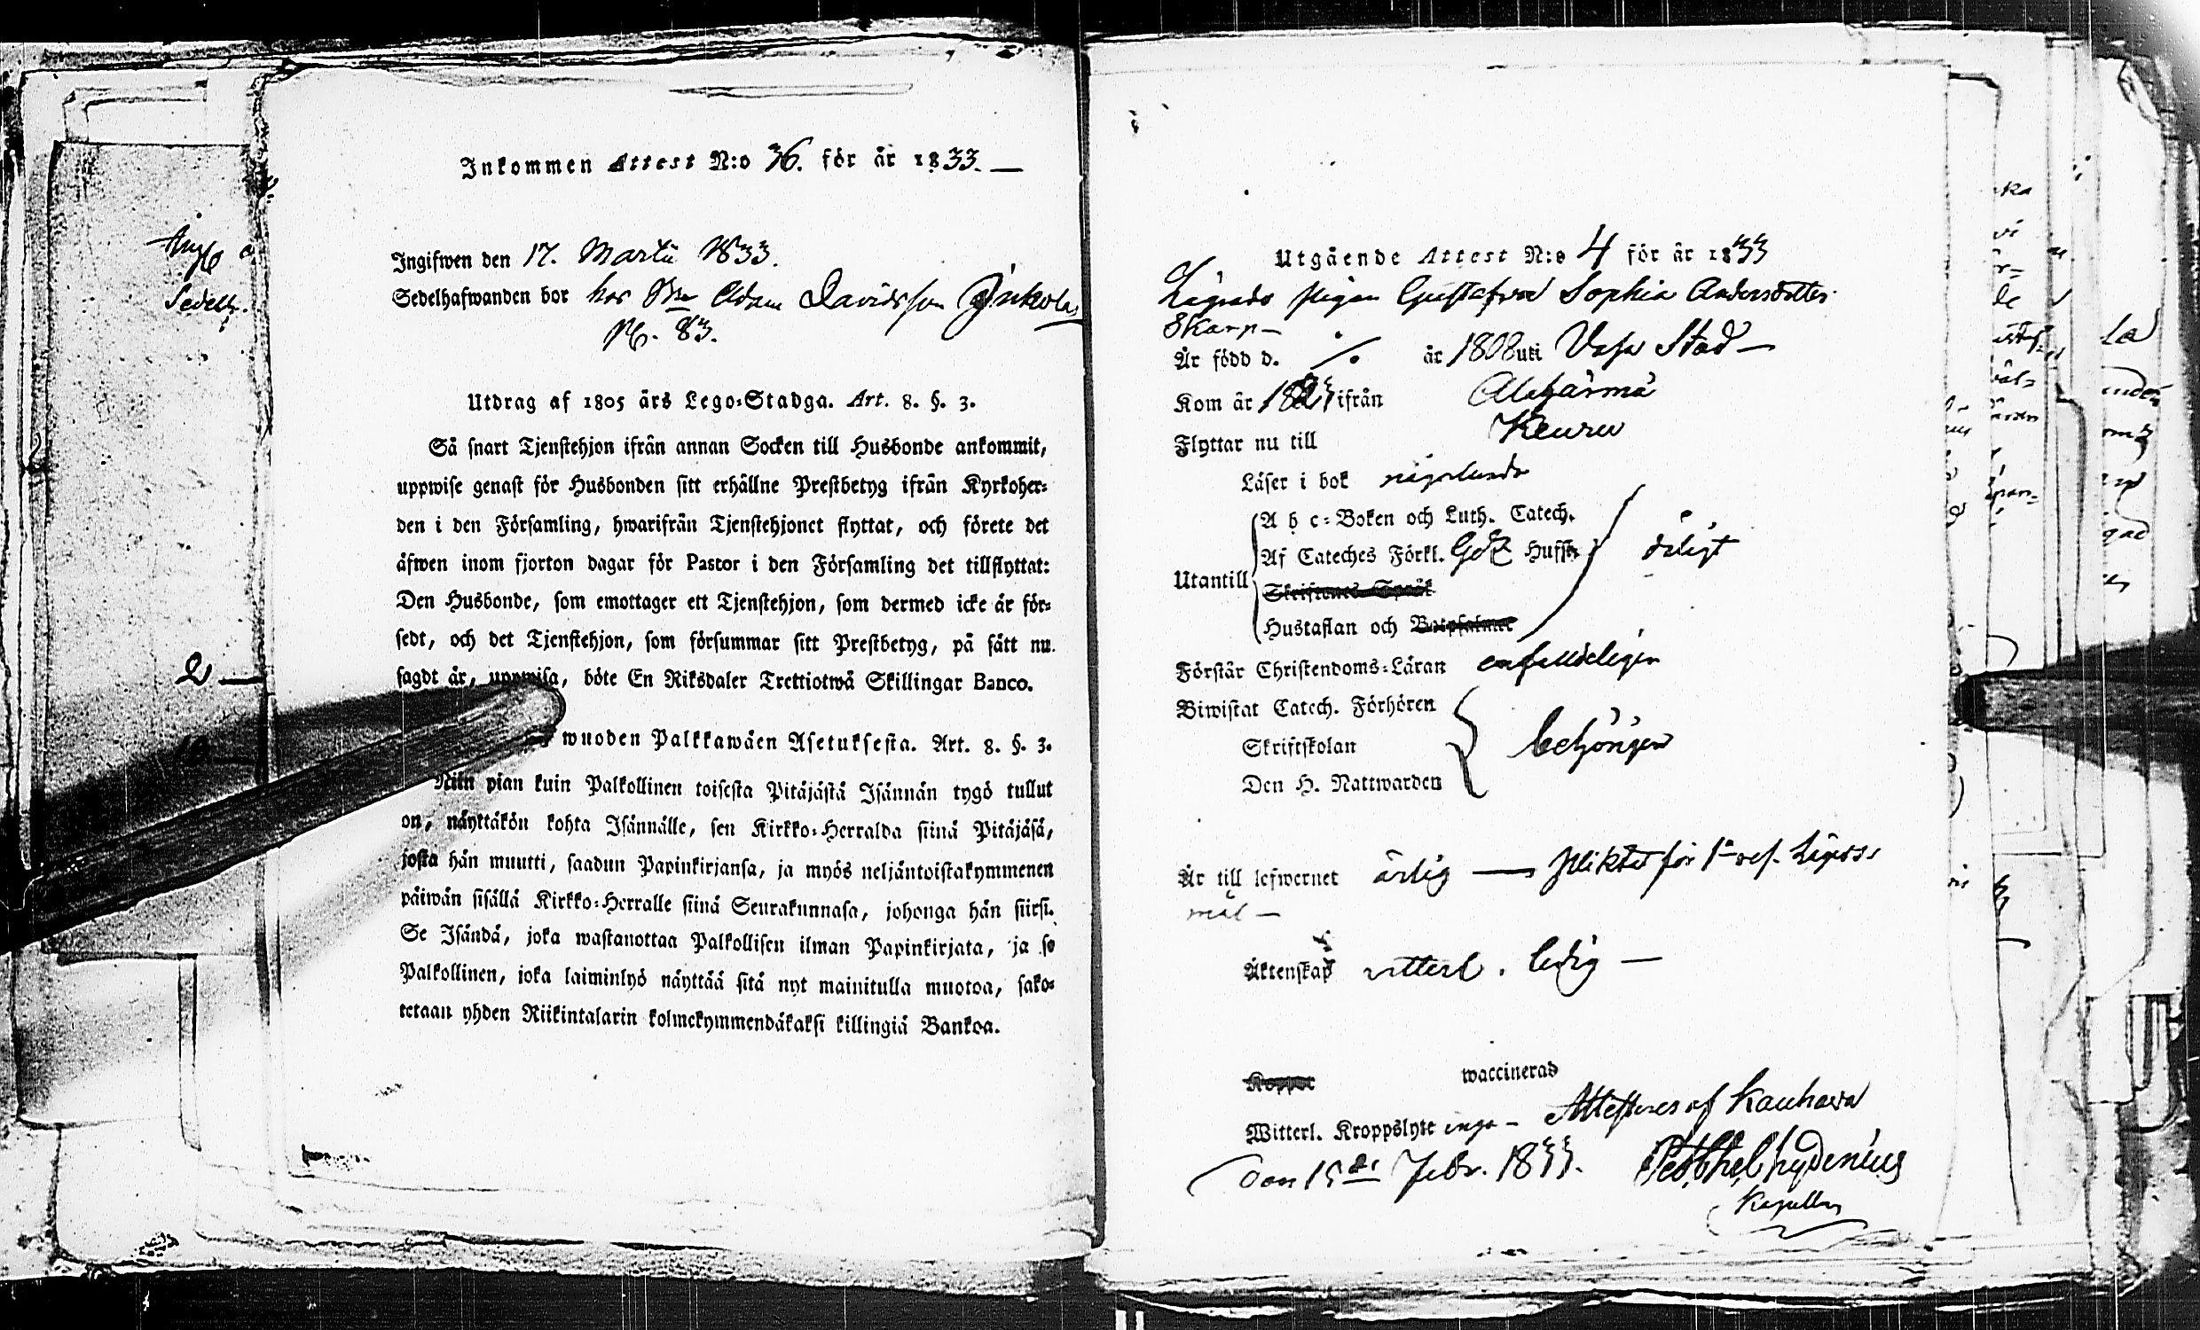 Inkommen Attest N:o 36. för år 1833. —
Ingifwen den 17. Martii 1833.
Sedelhafwanden bor hos Adam Davidsson
N. 83.
Utdrag af 1805 års Lego-Stadga. Art. 8. §. 3.
Så snart Tjenstehjon ifrån annan Socken till Husbonde ankommit,
uppwise genast för Husbonden sitt erhållne Prestbetyg ifrån Kyrkoher-
den i den Församling, hwarifrån Tjenstehjonet flyttat, och förete det
äfwen inom fjorton dagar för Pastor i den Församling det tillflyttat:
Den Husbonde, som emottager ett Tjenstehjon, som dermed icke är för-
sedt, och det Tjenstehjon, som försummar sitt Prestbetyg, på sätt nu
sagdt är, uppwisa, böte En Riksdaler Trettiotwå Skillingar Banco.
wuoden Palkkawäen Asetuksesta. Art. 8. §. 3.
Niin pian kuin Palkollinen toisesta Pitäjästä Isännän tygö tullut
on, näyttäkön kohta Isännälle, sen Kirkko-Herralda siinä Pitäjäsä,
josta hän muutti, saadun Papinkirjansa, ja myös neljäntoistakymmenen
päiwän sisällä Kirkko-Herralle siinä Seurakunnasa, johonga hän siirsi.
Se Isändä, joka wastanottaa Palkollisen ilman Papinkirjata, ja se
Palkollinen, joka laiminlyö näyttää sitä nyt mainitulla muotoa, sako-
tetaan yhden Riikintalarin kolmekymmendäkaksi killingiä Bankoa.
Utgående Attest N:o 4 för år 1833
Lägrads pigan Gustafva Sophia Andersdotter
Skarp —
Är född d. /. år 1808 uti Vasa Stad —
Kom år ifrån Alahärmä
Flyttar nu till Keuru
Läser i bok någorlunda
A b c-Boken och Luth. Catech.
Af Cateches Förkl.
Utantill
Skriftenes Språk
Hustaflan och Botpsalmer
Förstår Christendoms-Läran enfaldeligen
Biwistat Catech. Förhören
Skriftskolan behörigen
Den H. Nattwarden
Är till lefwernet ärlig — Pliktat för 1:a resan Lägers-
mål —
Äktenskap vitterl. ledig —
Koppor waccinerad
Witterl. Kroppslyte inga — Attesteras af Kauhava
den 15de Febr. 1833.
Kapellan